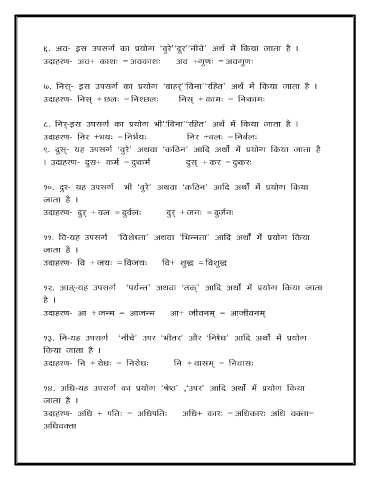 ६. अव- इस उपसर्ग का प्रयोग 'बुरे''दूर''नीचे' अर्थ में किया जाता है ।
उदाहरण- अव+ काशः =अवकाशः अव +गुणः =अवगुणः
७. निस्- इस उपसर्ग का प्रयोग 'बाहर्''विना''रहित' अर्थ में किया जाता है ।
उदाहरण- निस् +छलः =निश्छलः निस् +कामः = निष्कामः
८. निर्-इस उपसर्ग का प्रयोग भी''विना''रहित' अर्थ में किया जाता है ।
उदाहरण- निर +भयः =निर्भयः निर +बलः =निर्बलः
९. दुस्- यह उपसर्ग 'बुरे' अथवा 'कठिन' आदि अर्थों में प्रयोग किया जाता है
। उदाहरण- दुस+ कर्म =दुष्कर्म दुस् + कर =दुष्करः
१०. दुर- यह उपसर्ग भी 'बुरे' अथवा 'कठिन' आदि अर्थों में प्रयोग किया
जाता है ।
उदाहरण- दुर् +बल =दुर्बलः दुर् +जनः =दुर्जनः
११. वि-यह उपसर्ग 'विशेषता' अथवा 'भिन्नता' आदि अर्थों में प्रयोग किया
जाता है ।
उदाहरण- वि +जयः =विजयः वि+ शुद्ध =विशुद्ध
१२. आङ्-यह उपसर्ग 'पर्यन्त' अथवा 'तक्' आदि अर्थों में प्रयोग किया जाता
है ।
उदाहरण- आ +जन्म = आजन्म आ+ जीवनम् =आजीवनम्
१३. नि-यह उपसर्ग 'नीचे' उपर 'भीतर' और 'निषेध' आदि अर्थों में प्रयोग
किया जाता है ।
उदाहरण- नि +रोधः = निरोधः नि +वासम् = निवासः
१४. अधि-यह उपसर्ग का प्रयोग 'श्रेष्ठ' ,'उपर' आदि अर्थों में प्रयोग किया
जाता है ।
उदाहरण- अधि + पतिः = अधिपतिः अधि+ कारः =अधिकारः अधि वक्ता=
अधिवक्ता